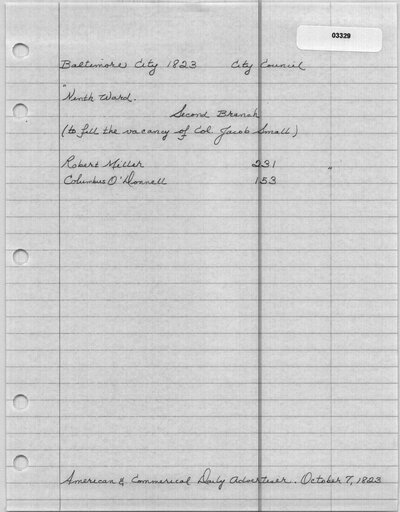 03329
Baltimore City 1823 City Council
" Ninth Ward.
Second Branch
(to fill the vacancy of Col. Jacob Small)
Robert Miller 231 "
Columbus O'Donnell 153
American & Commerical Daily Advertiser. October 7, 1823